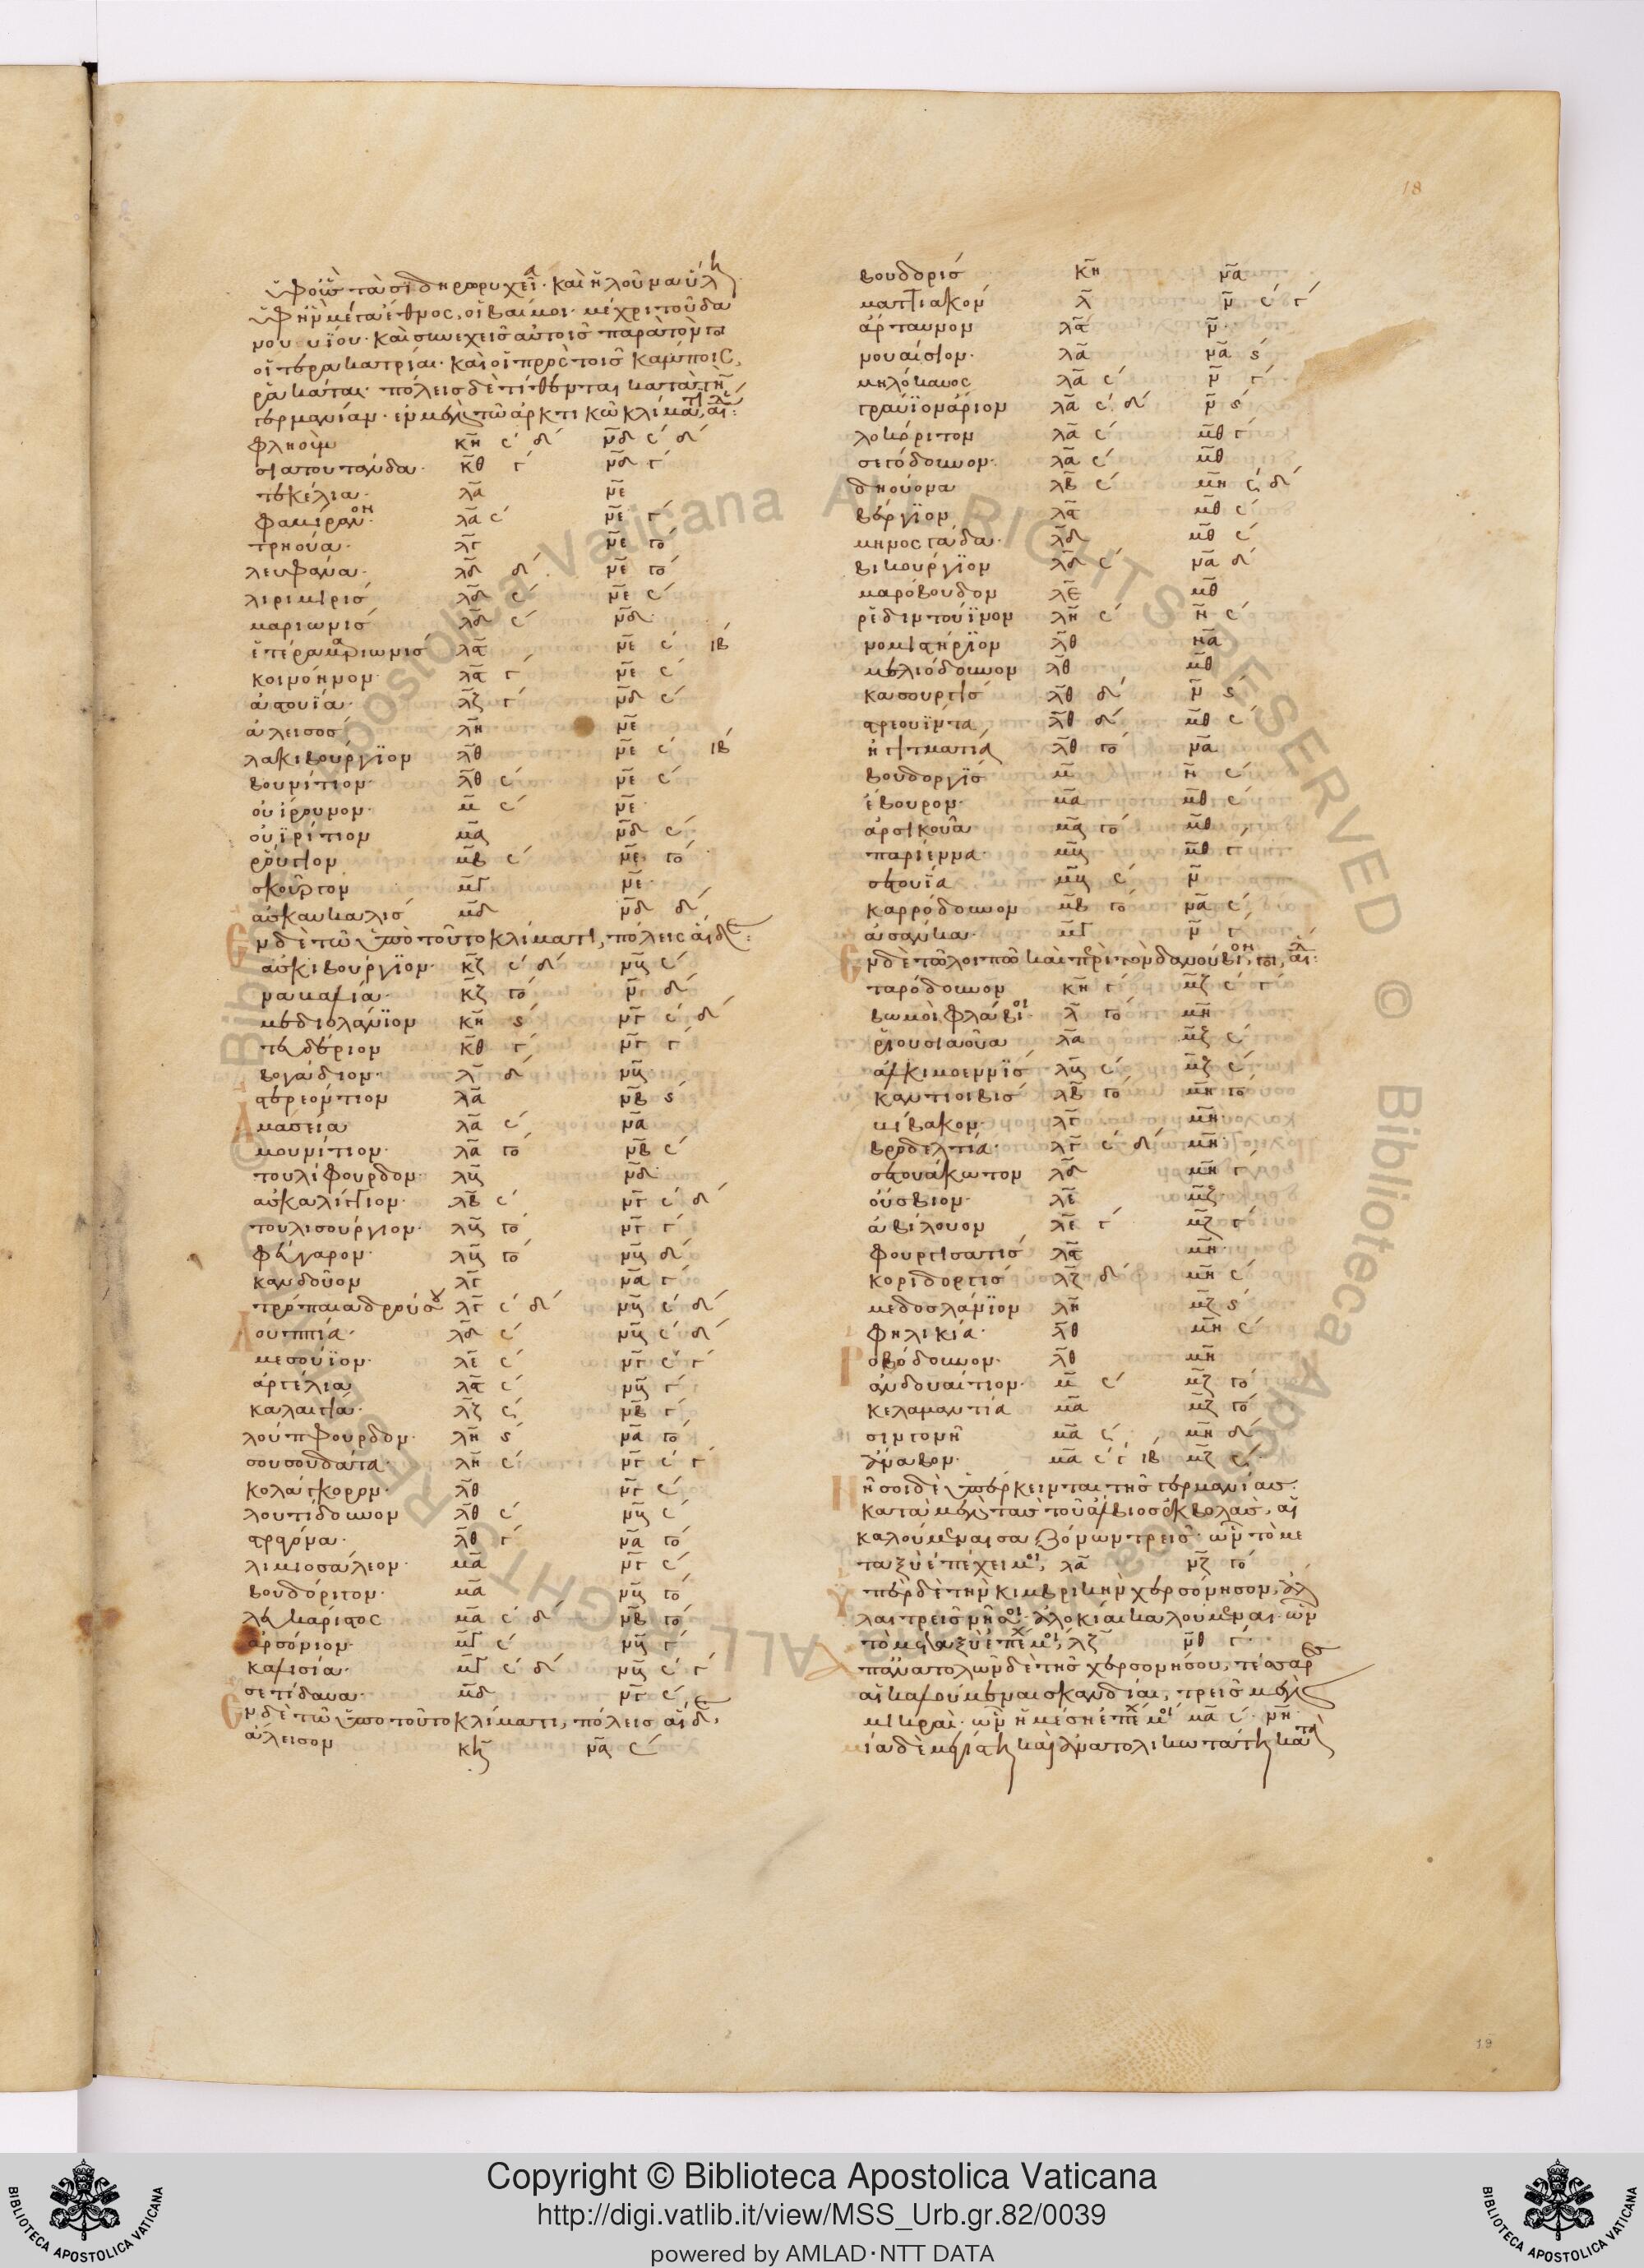 ὑφ' οὓς τὰ σιδηρωρυχεῖα· καὶ ἡ λοῦνα ὕλη
ὑφ' ἣν μέγα ἔθνος, οἱ βαῖμοι· μέχρι τοῦ δα
νουουίου· καὶ συνεχεῖς αὐτοῖς παρὰ τὸν πο
οἱ τερακατρίαι· καὶ οἱ πρὸς τοῖς κάμποις,
ῥακάται· πόλεις δὲ τίθενται κατὰ τὴν
γερμανίαν· ἐν μὲν τῷ ἀρκτικῷ κλίματι, αἵδε:
φληοὺμ κη ∠´ δ´ νδ ∠´ δ´
σιατουτάνδα· κθ γ´ νδ γ´
τεκέλια· λα νε
φαμίρανον· λα ∠´ νε γ´
τρηούα· λγ νε γο´
λευφάνα· λδ δ´ νε γο´
λιριμιρίς λδ ∠´ νε ∠´
μαριωνίς λδ ∠´ νδ
ἑτέρα μαριωνίς λϛ νε ∠´ ιβ´
κοινόηνον· λϛ γ´ νε ∠´
ἀστουία· λζ γ´ νδ ∠´
ἄλεισος λη νε
λακιβούργιον λθ νε ∠´ ιβ´
βουνίτιον· λθ ∠´ νε ∠´
οὐίρουνον· μ ∠´ νε
οὐιρίτιον μα νδ ∠´
ῥούτιον μβ ∠´ νε γο´
σκοῦργον μγ νε
ἀσκαυκαλίς μδ νδ δ´
Ἐν δὲ τῷ ὑπὸ τοῦτο κλίματι, πόλεις αἵδε:
ἀσκιβούργιον· κζ ∠´ δ´ νβ ∠´
ναυαλία· κζ γο´ ν δ´
μεδιολάνιον κη ς´ νγ ∠´ δ´
τευδέριον κθ γ´ νγ γ´
βογάδιον· λ δ´ νβ
στερεόντιον λα νβ ς´
Ἀμάσεια λα ∠´ να
μουνίτιον· λα γο´ νβ ∠´
τουλίφουρδον λβ νδ
ἀσκαλίγγιον· λβ ∠´ νγ ∠´ δ´
τουλισούργιον· λβ γο´ νγ γ´
φεύγαρον· λβ γο´ νβ δ´
κανδοῦον λγ να γ´
τρόπαια δρούσου λγ ∠´ δ´ νβ ∠´ δ´
Λουππία· λδ ∠´ νβ ∠´ δ´
μεσούιον· λε ∠´ νγ ∠´ γ´
ἀργέλια λϛ ∠´ νβ γ´
καλαιγία· λζ ∠´ νβ γ´
λούπφουρδον· λη ς´ να γο´
σουσουδάτα· λη ∠´ νγ ∠´ γ´
κολάγκορον· λθ νγ ∠´
λουγίδουνον λθ ∠´ νβ ∠´
στραγόνα· λθ γ´ να γο´
λιμιοσάλεον· μα νγ ∠´
βουδόριγον· μα νβ γο´
λευκάριστος μα ∠´ δ´ νβ γο´
ἀρσόνιον· μγ ∠´ νβ γ´
καλισία· μγ ∠´ δ´ νβ ∠´ γ´
σετίδαυα· μδ νγ ∠´
Ἐν δὲ τῷ ὑπὸ τοῦτο κλίματι, πόλεις αἵδε,
ἄλεισον κη να ∠´
βουδορίς κη να
ματτιακόν λ ν ∠´ γ´
ἄρταυνον λα ν
νουαίσιον· λα να ς´
μηλόκαυος λα ∠´ ν γ´
γραυϊονάριον λα ∠´ δ´ ν ς´
λοκόριτον λα ∠´ μθ γ´
σεγόδουνον· λα ∠´ μθ
δηούονα λβ ∠´ μη ∠´ δ´
βέργιον λα μθ ∠´
μηνοσγάδα· λδ μθ ∠´
βικούργιον λδ ∠´ να δ´
μαρόβουδον λε μθ
ῥεδιντούινον λη ∠´ ν ∠´
νομιστήριον λθ να
μελιόδουνον λθ μθ
κασουργίς λθ δ´ ν ς´
στρεουίντα λθ δ´ μθ ∠´
ἡγητματία λθ γο´ να
βουδοργίς μ ν ∠´
ἔβουρον· μα μθ ∠´
ἀρσικούα μα γο´ μθ
παρίεννα· μβ μθ γ´
σετουία μβ ∠´ ν
καρρόδουνον μβ γο´ να ∠´
ἀσάνκα· μγ ν γ´
Ἐν δὲ τῷ λοιπῷ καὶ περὶ τὸν δανούβιον, πο, αἵδε:
ταρόδουνον κη γ´ μζ ∠´ γ´
βωμοὶ φλάβιοι λ γο´ μη
ῥιουσιαοῦα λα μζ ∠´
ἀλκιμοεννίς λβ ∠´ μζ ∠´
καντιοιβίς λβ γο´ μη γο´
βίβακον· λγ μη
βροδεντία· λγ ∠´ δ´ μη
σετουάκωτον λδ μη γ´
οὔσβιον· λε μζ
ἀβίλουον λε γ´ μζ γ´
φουργισατίς λϛ μη
κοριδοργίς λζ δ´ μη ∠´
μεδοσλάνιον λη μζ ς´
φηλικία· λθ μη ∠´
Ῥοβόδουνον· λθ μη
ἀνδουαίτιον· μ ∠´ μζ γο´
κελαμαντία μα μζ γο´
σιγγονῆ μα ∠´ μη δ´
ἄναβον· μα ∠´ γ´ ιβ´ μζ ∠´
Νῆσοι δὲ ὑπέρκεινται τῆς γερμανίας·
κατὰ μὲν τὰς τοῦ ἄλβιος ἐκβολὰς, αἱ
καλούμεναι σαξόνων τρεῖς· ὧν τὸ με
ταξὺ ἐπέχει μοί, λα νζ γο´
Ὑπὲρ δὲ τὴν κιμβρικὴν χερσόνησον, ἄλ
λαι τρεῖς νῆσοι· ἀλοκίαι καλούμεναι· ὧν
τὸ μεταξὺ ἐπέχει μοί, λζ νθ γ´
Ἀπ' ἀνατολῶν δὲ τῆς χερσονήσου, τέσσαρες
αἱ καλούμεναι σκανδίαι, τρεῖς μὲν
μικραὶ· ὧν ἡ μέση ἐπέχει μοί μα ∠´ νη
μία δὲ μεγίστη καὶ ἀνατολικωτάτη κατὰ
18
19
Copyright © Biblioteca Apostolica Vaticana
http://digi.vatlib.it/view/MSS_Urb.gr.82/0039
powered by AMLAD·NTT DATA